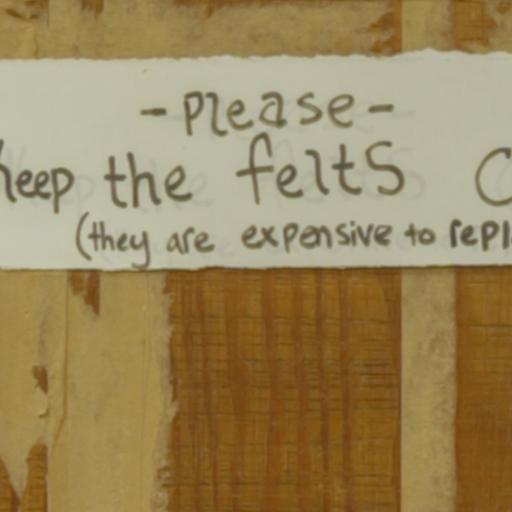 - Please -
keep the felts C
(they are expensive to repl